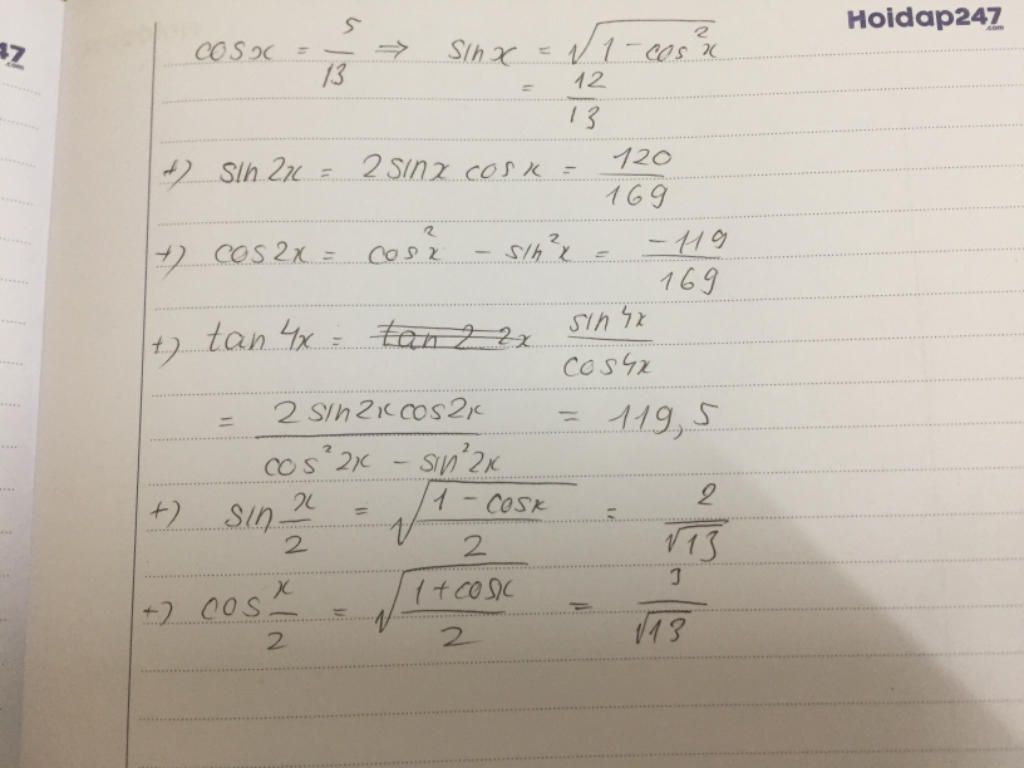 Hoidap247
.com
47
.com
cosx = 5/13 ⇒ sinx = √(1 - cos²x)
= 12/13
+) sin2x = 2sinx cosx = 120/169
+) cos2x = cos²x - sin²x = -119/169
+) tan4x = ~~tan 2 2x~~ sin4x/cos4x
= 2sin2xcos2x/(cos²2x - sin²2x) = 119,5
+) sin x/2 = √((1 - cosx)/2) = 2/√13
+) cos x/2 = √((1 + cosx)/2) = 3/√13